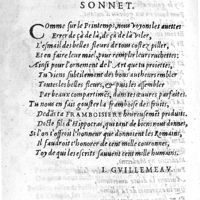 SONNET.
Comme sur le Printemps, nous voyons les auettes
Errer deçà delà, deçà delà voler,
L'esmail des belles fleurs de tous costez piller,
Et en faire leur miel, pour remplir leurs
Ainsi pour l'ornement de l'Art que tu proiettes,
Tu viens subtilement des bons autheurs embler
Toutes les belles fleurs, & puis les assembler
Par beaux compartimens, dans tes œuures parfaites.
Tu nous en fais gouster la framboise des fruits,
Docte FRAMBOISIERE bien produits.
Docte fils d'Hippocras, qui tant de biens nous donnes,
Et si on t'offroit l'honneur que donnoient les Romains,
Il faudroit t'honorer de cent mille couronnes,
Toy de qui les escrits sauuent cent mille humains.
I. GVILLEMEAV.